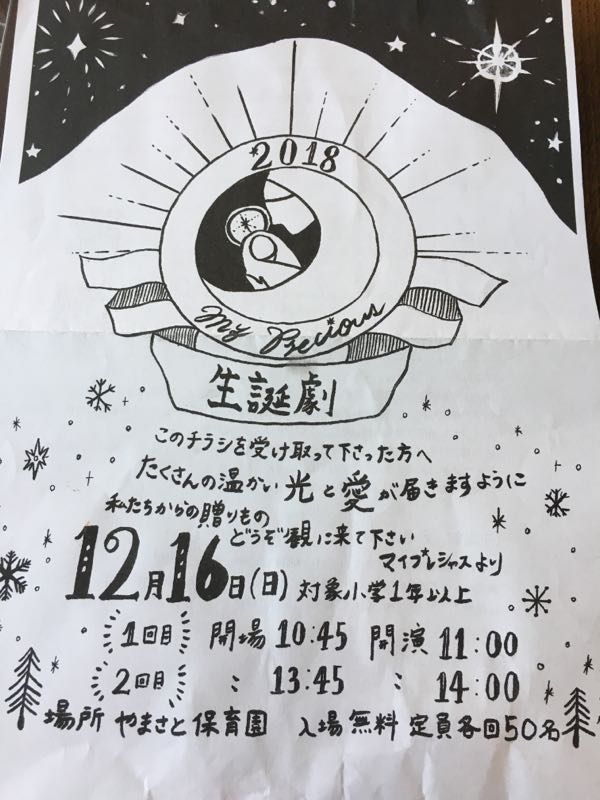 2018
My Precious
生誕劇
このチラシを受け取って下さった方へ
たくさんの温かい光と愛が届きますように
私たちからの贈りもの
どうぞ観に来て下さい
マイプレシャスより
12月16日(日) 対象小学1年以上
1回目 開場 10:45 開演 11:00
2回目 : 13:45 : 14:00
場所 やまさと保育園 入場無料 定員各回50名